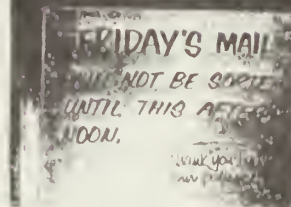 FRIDAY'S MAIL
WILL NOT BE SORTED
UNTIL THIS AFTER
NOON.
Thank you